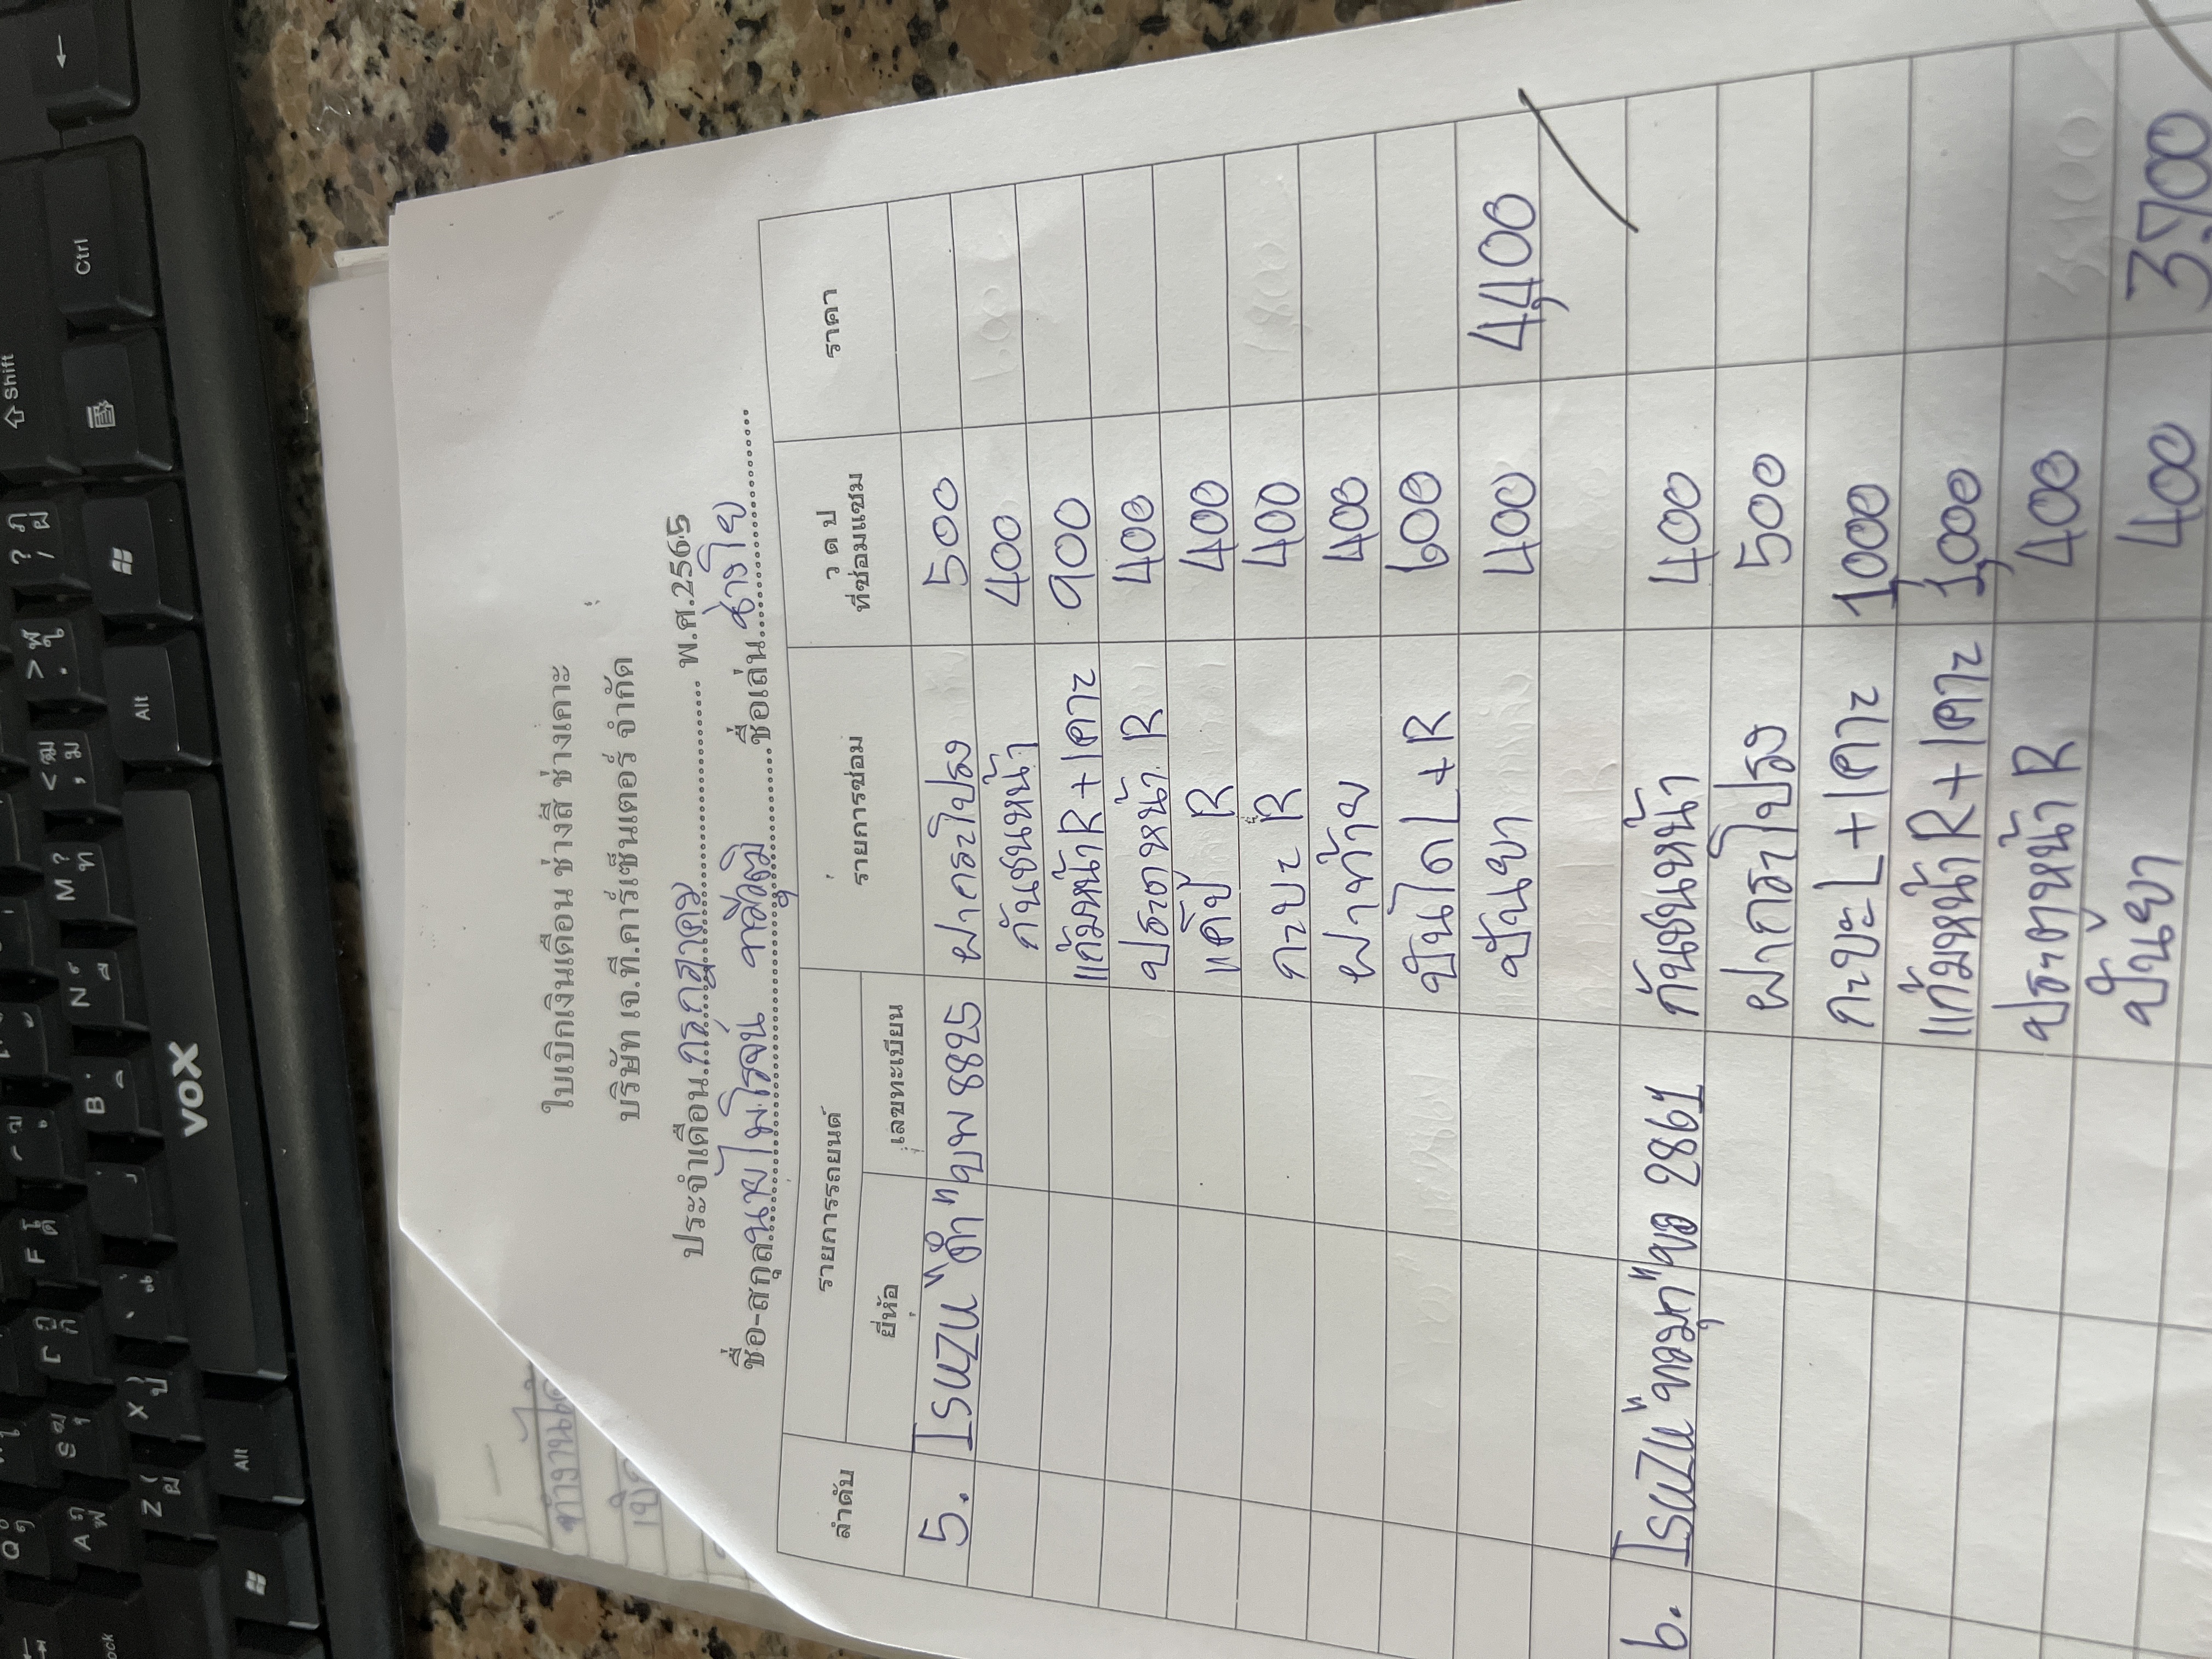 ใบเบิกเงินเดือน ช่างสี ช่างเคาะ
บริษัท เจ.ที.คาร์เซ็นเตอร์ จำกัด
ประจำเดือน.กรกฎาคม.......... พ.ศ.2565
ชื่อ-สกุล นายไมโรจน์ ชื่อเล่น ช่างโย
ลำดับ รายการรถยนต์ รายการซ่อม ว ด ป ที่ซ่อมแซม ราคา
ยี่ห้อ เลขทะเบียน
5. ISUZU "ดำ" บพ 8825 ฝากระโปรง 500
กันชนหน้า 400
แก้มหน้า R + เคาะ 900
ประตูหน้า R 400
แค็ป R 400
กะบะ R 400
ฝาท้าย 400
บันได L + R 600
ปั้นยา 400 4,400
6. ISUZU "ขาวมุก" ขอ 2861 กันชนหน้า 400
ฝากระโปรง 500
กะบะ L + เคาะ 1,000
แก้มหน้า R + เคาะ 1,000
ประตูหน้า R 400
ปั้นยา 400 3,700
Shift
Ctrl
Alt
VOX
M
N
B
F
X
Z
A
Q
Alt